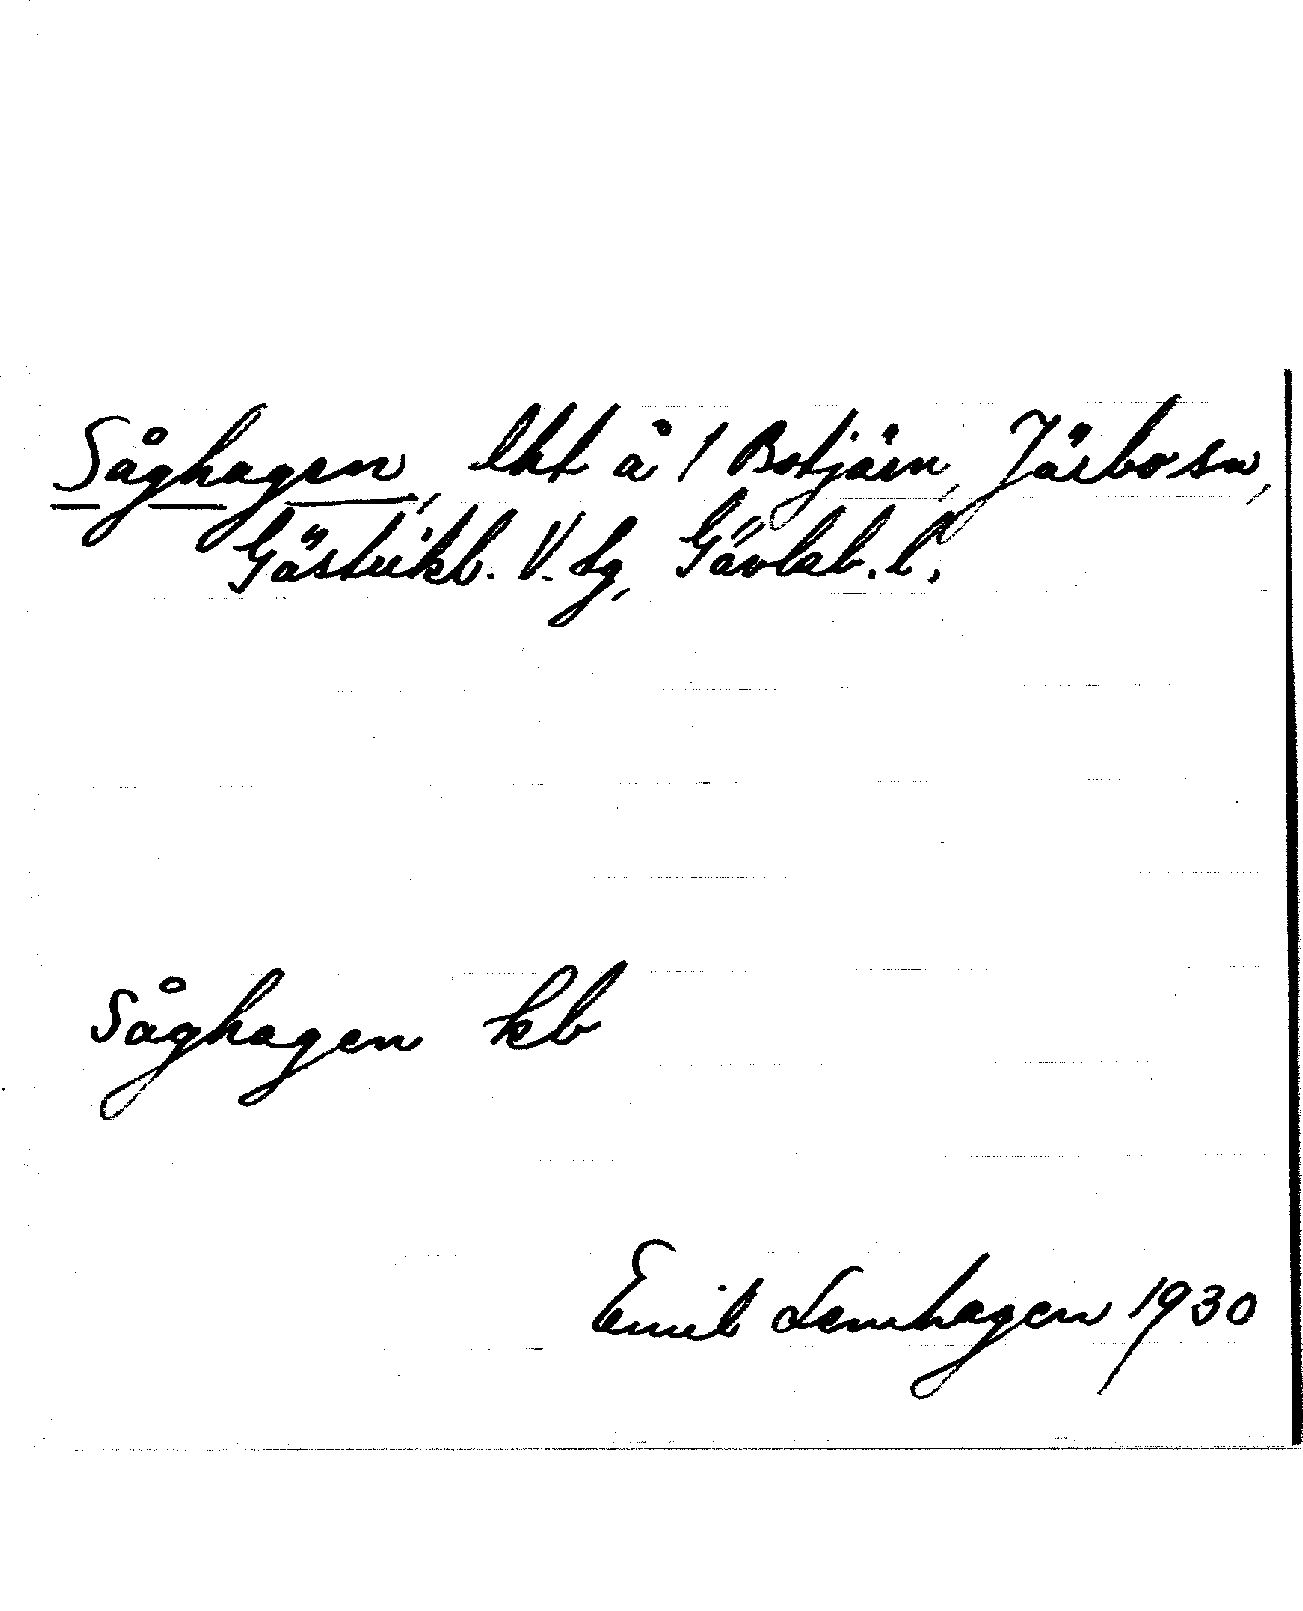 Såghagen, lht å 1 Botjärn, Järbo sn,
Gästrikl. V. tg, Gävleb. l.
Såghagen kb
Emil Lemhagen 1930